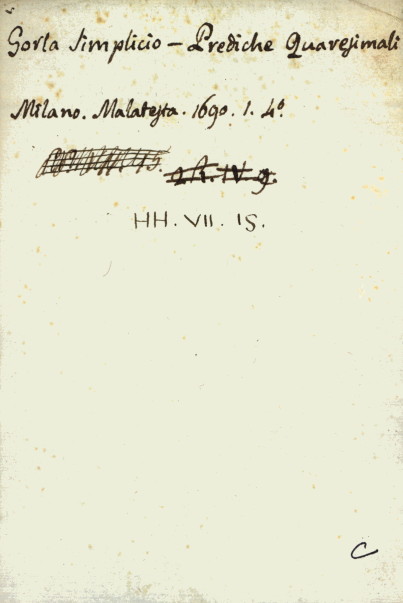 Gorla Simplicio – Prediche Quaresimali
Milano. Malatesta. 1690. 1. 4º.
2h. IV 9.
HH. VII. 15.
C